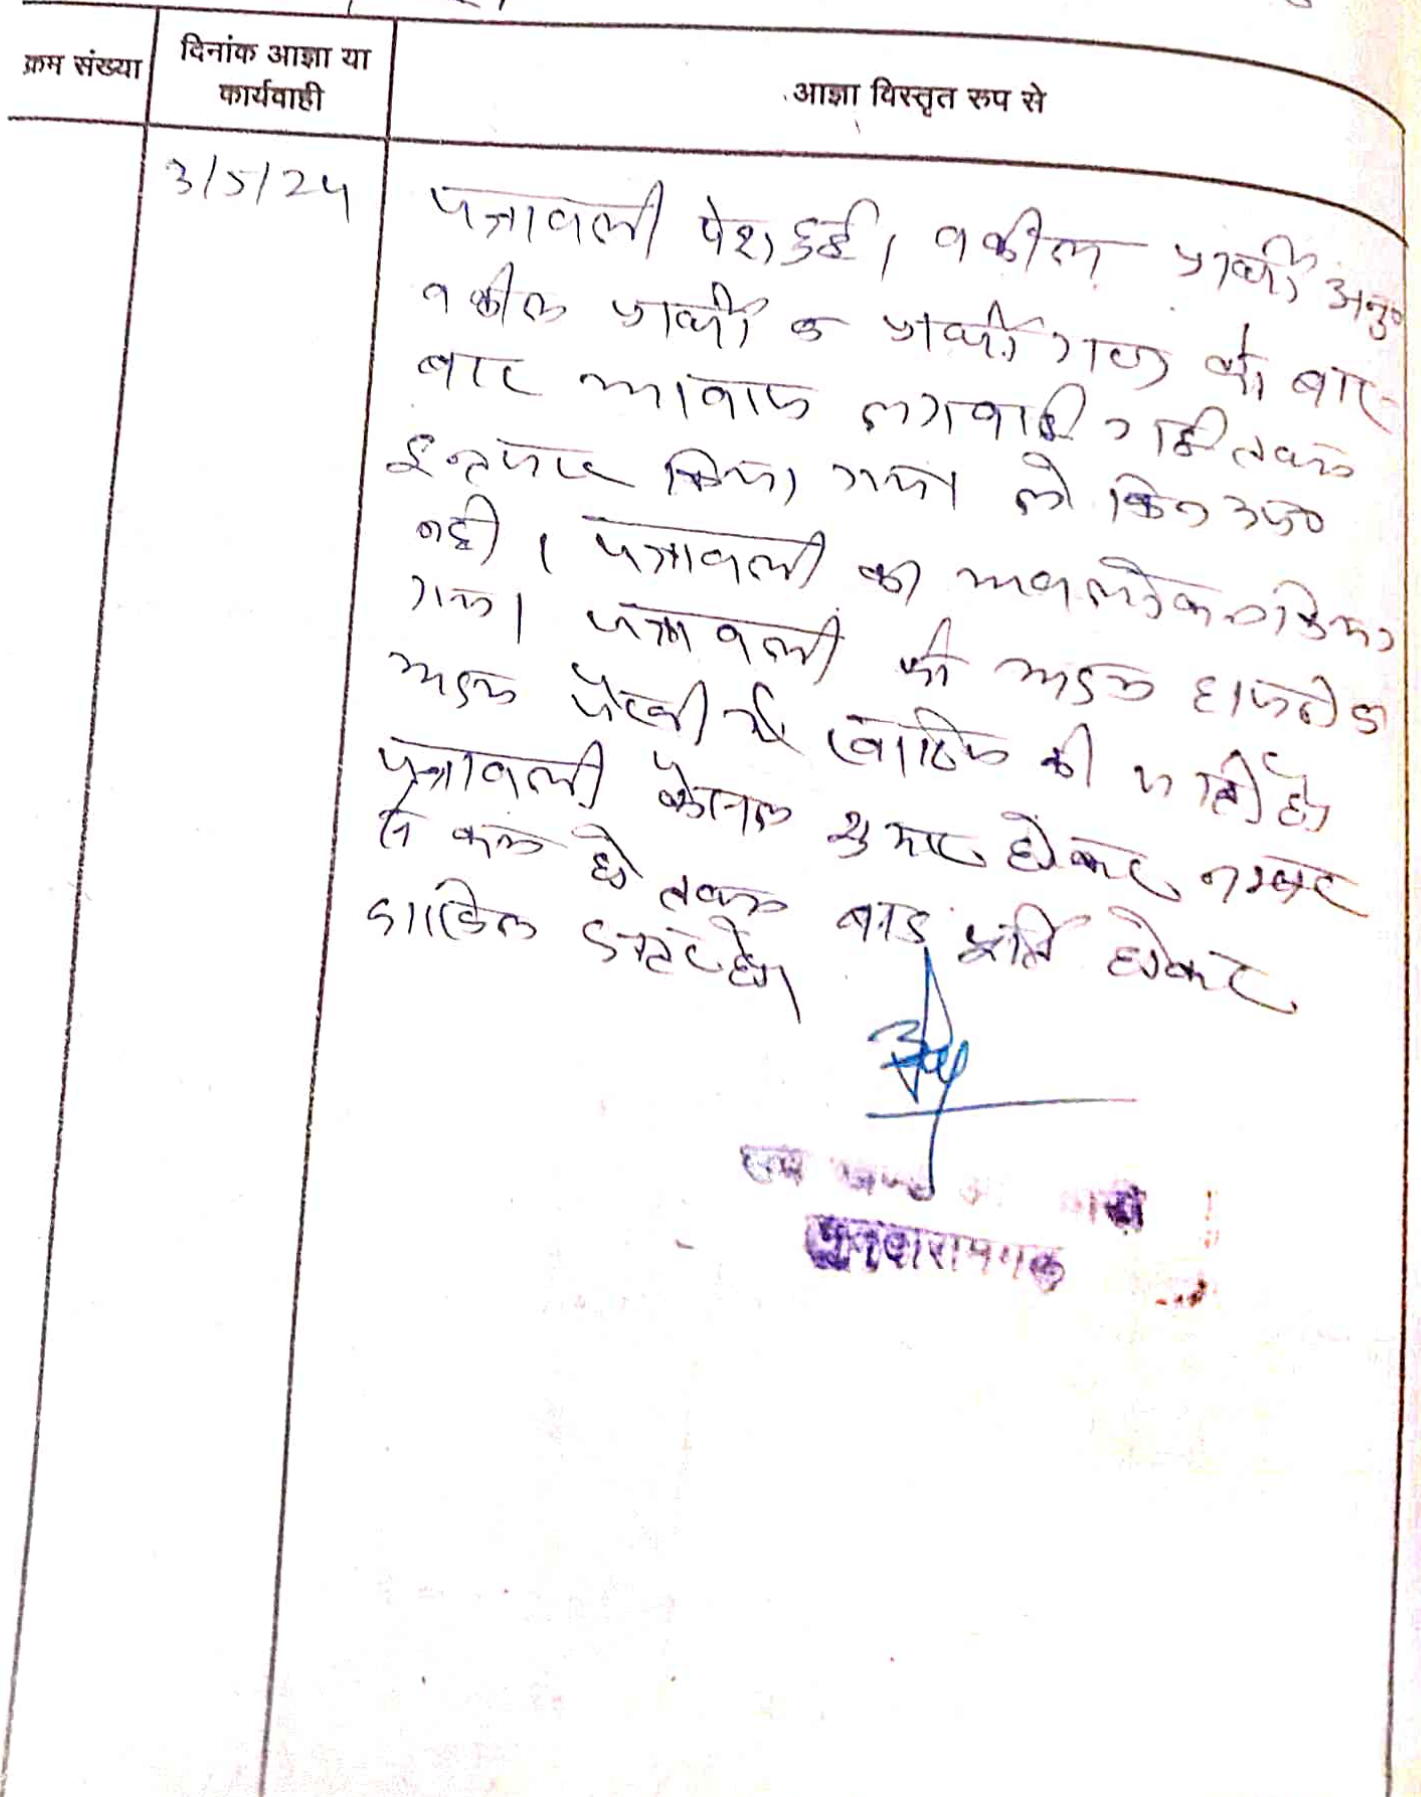 क्रम संख्या
दिनांक आज्ञा या
कार्यवाही
आज्ञा विस्तृत रूप से
3/5/24
पत्रावली पेश हुई। वकील प्रार्थी अनु०
वकील प्रार्थी व प्रार्थीगण को बार-
बार आवाज लगवाई गई तथा
इन्तजार किया गया लेकिन उप०
नही। पत्रावली का अवलोकन किया
गया। पत्रावली को अदम हाजरी व
अदम पैरवी में खारिज की जाती है।
पत्रावली फैसल शुमार होकर नम्बर
से कम हो तथा बाद पूर्ति होकर
दाखिल दफ्तर हो।